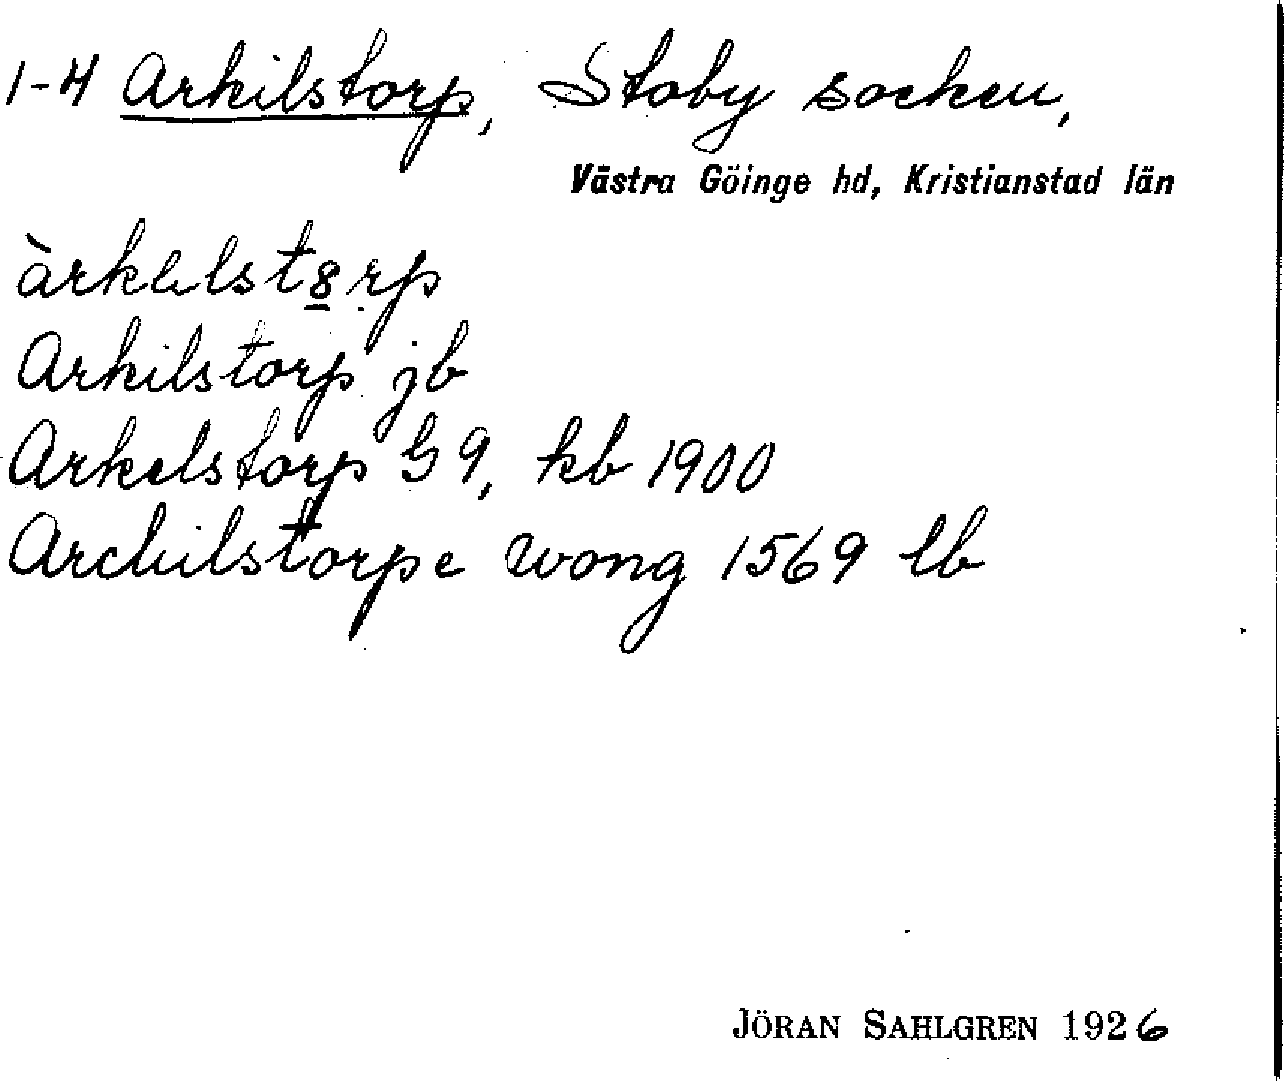 1-4 Arkilstorp, Stoby socken,
Västra Göinge hd, Kristianstad län
àrkelst8rp
Arkilstorp jb
Arkelstorp G9, kb 1900
Archilstorpe wong 1569 lb
JÖRAN SAHLGREN 1926